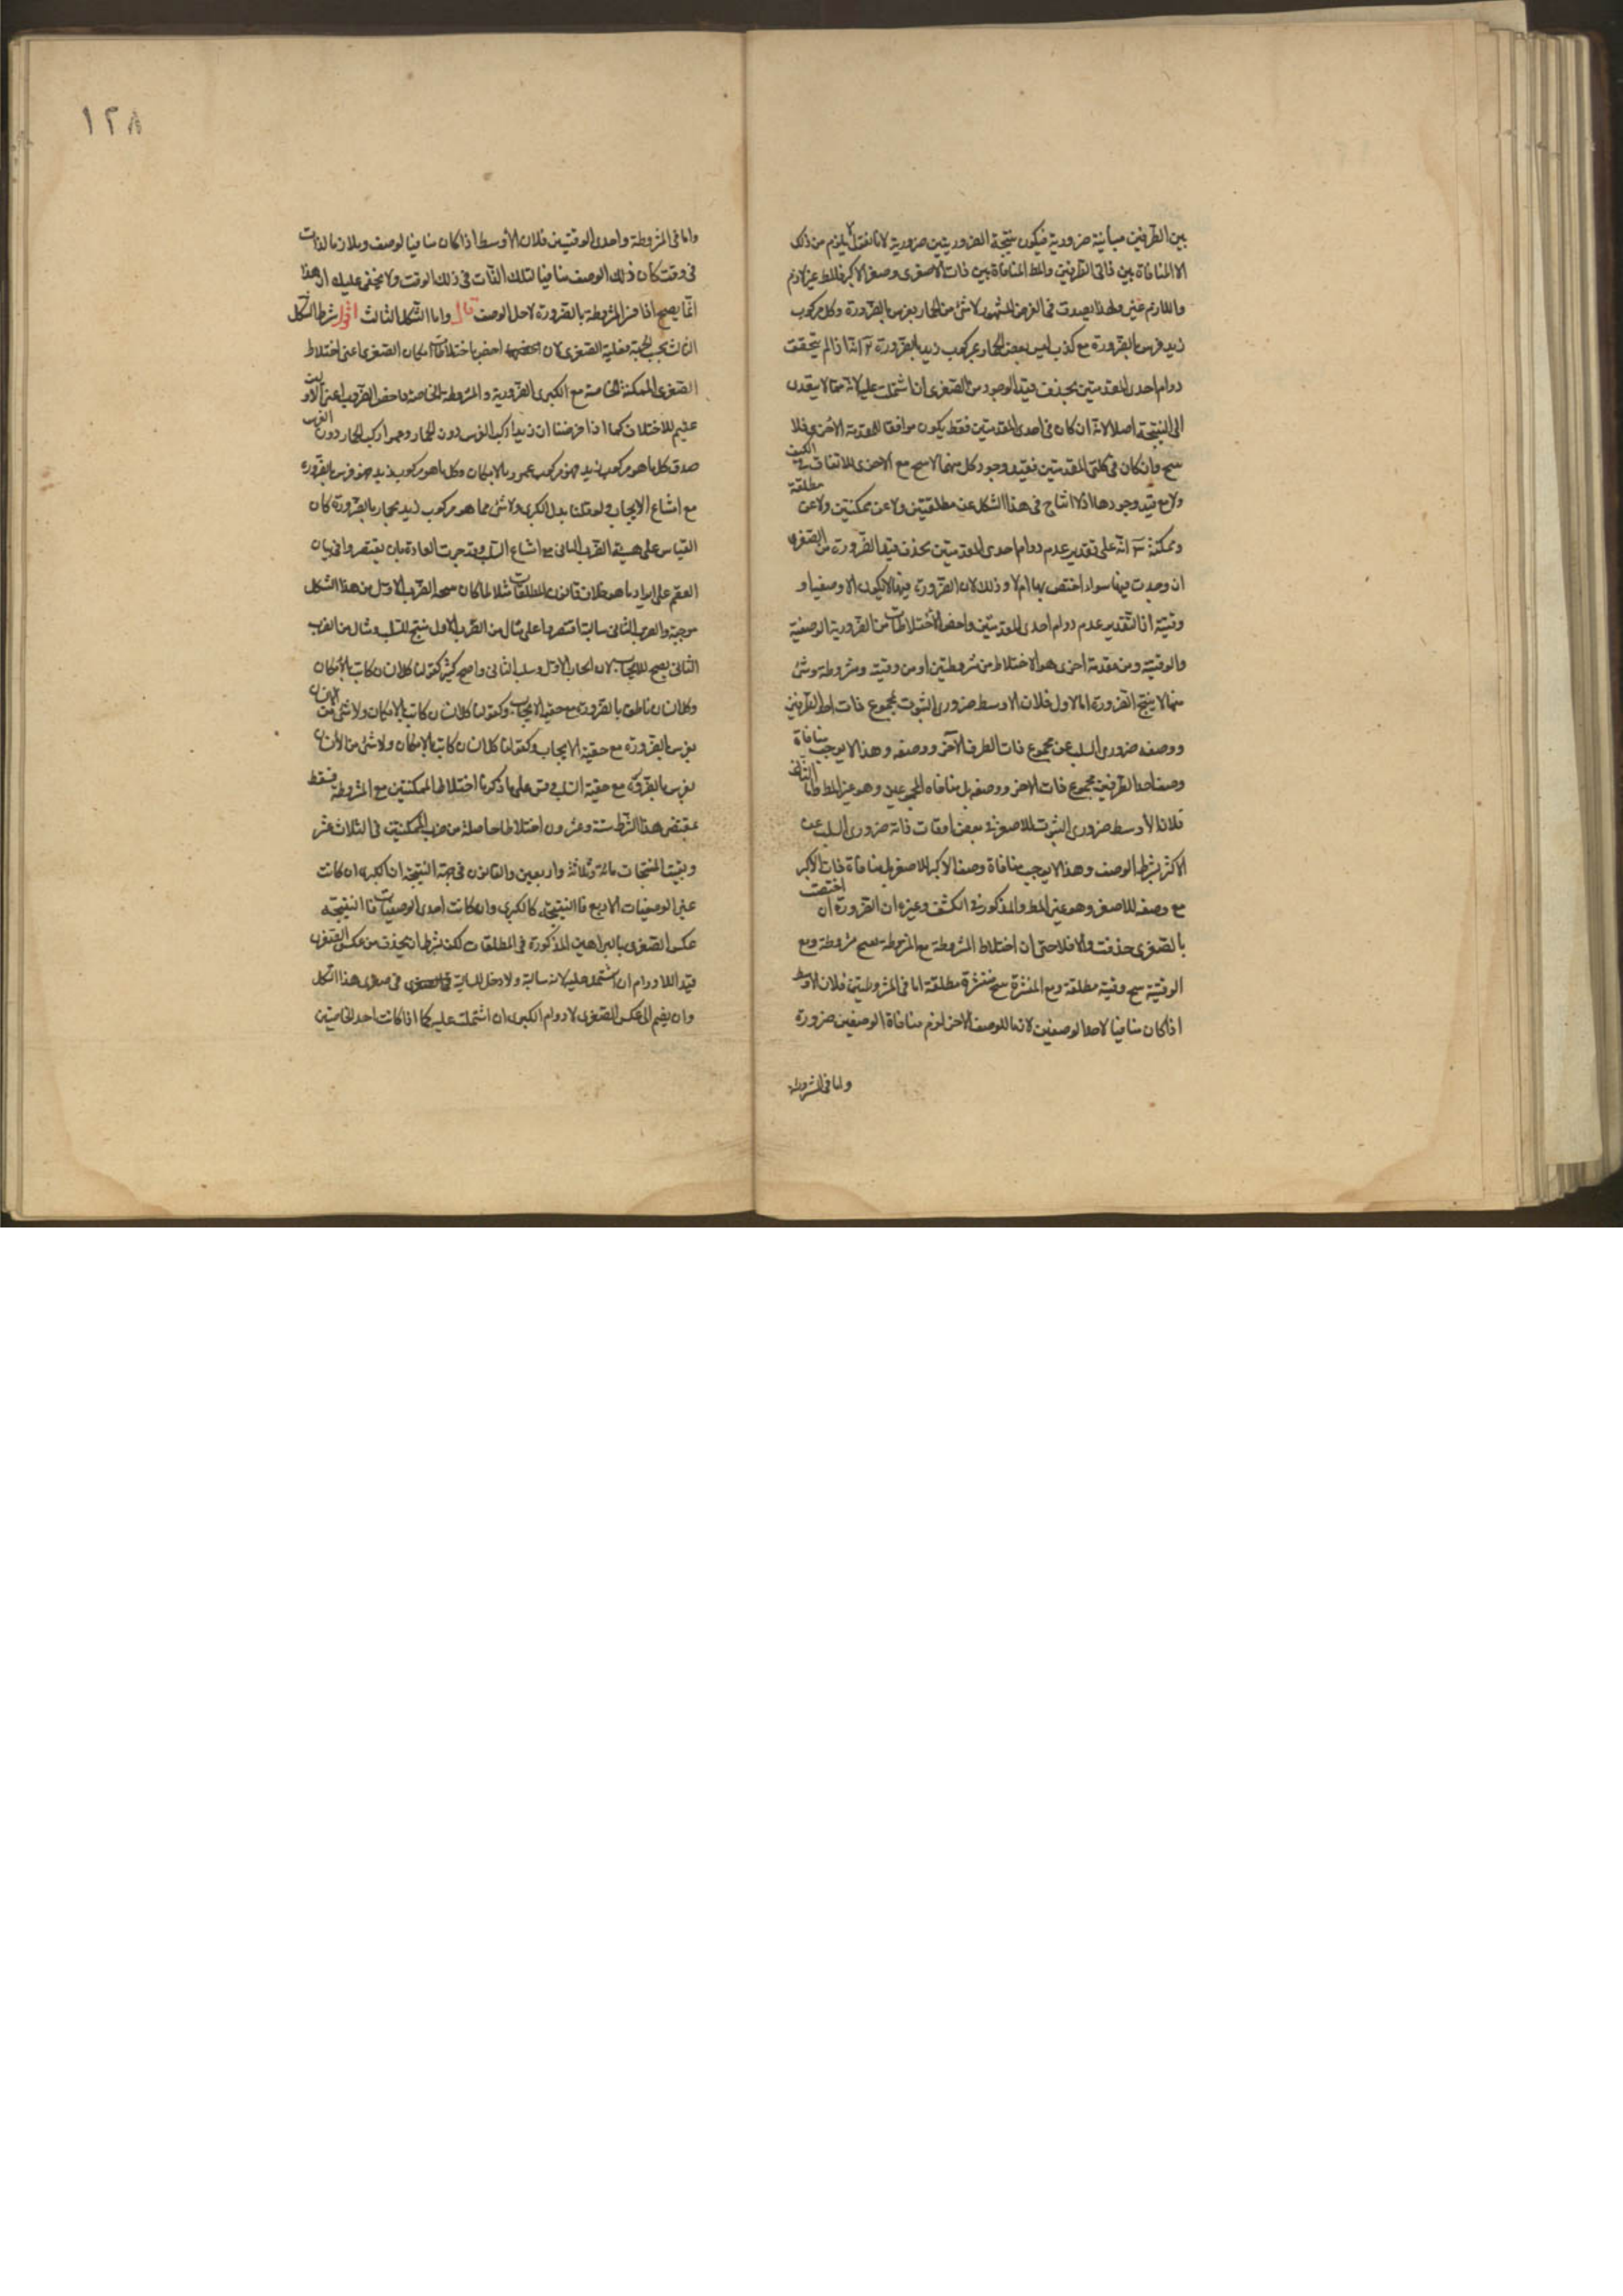 بين الطرفين مباينة ضرورية فيكون نتيجة الضروريتين ضرورية لانا نقول لا يلزم من ذلك
الا المنافاة بين ذاتي الطرفين والمط المنافاة بين ذات الاصغر ووصف الاكبر فالمط غير لازم
واللازم غير ولهذا يصدق في الفرض المشهور لا شئ من الحمار بفرس بالضرورة وكل مركوب
زيد فرس بالضرورة مع كذب ليس بعض الحمار بمركوب زيد بالضرورة انه اذا لم يتحقق
دوام احدى المقدمتين يحذف قيد الوجود من الصغرى ان اشتملت عليه لانه مما لا يتعدى
الى النتيجة اصلا لانه ان كان في احدى المقدمتين فقط يكون موافقا للمقدمة الاخرى فلا
ينتج وان كان في كلتي المقدمتين فقيد وجود كل منهما لا ينتج مع الاخرى للاتفاق في الكيف
ولا مع قيد وجودها اذ لا انتاج في هذا الشكل عن مطلقتين ولا عن ممكنتين ولا عن مطلقة
وممكنة انه على تقدير عدم دوام احدى المقدمتين يحذف قيد الضرورة من الصغرى
ان وجدت فيها سواء اختص بها ام لا وذلك لان الضرورة فيها لا يكون الا وصفيا او
وقتية اذ التقدير عدم دوام احدى المقدمتين واخص الاختلاطات من الضرورية الوصفية
والوقتية ومن مقدمة اخرى هو الاختلاط من مشروطتين او من وقتية ومشروطة وشئ
منهما لا ينتج الضرورة اما الاول فلان الاوسط ضروري الثبوت لمجموع ذات احد الطرفين
ووصفه ضروري السلب عن مجموع ذات الطرف الآخر ووصفه وهذا لا يوجب منافاة
وصف احد الطرفين لمجموع ذات الاخر ووصفه بل منافاة المجموعين وهو غير المط واما الثاني
فلان الاوسط ضروري الثبوت للاصغر في بعض اوقات ذاته ضروري السلب عن
الاكبر بشرط الوصف وهذا لا يوجب منافاة وصف الاكبر للاصغر بل منافاة ذات الاكبر
مع وصفه للاصغر وهو غير المط والمذكور في الكشف وغيره ان الضرورة ان اختصت
بالصغرى حذفت والا فلا حتى ان اختلاط المشروطة مع المشروطة ينتج مشروطة ومع
الوقتية ينتج وقتية مطلقة ومع المنتشرة ينتج منتشرة مطلقة اما في المشروطتين فلان الاوسط
اذا كان منافيا لاحد الوصفين لازما للوصف الاخر لزم منافاة الوصفين ضرورة
واما في المشروطة
١٢٨
واما في المشروطة واحدى الوقتيتين فلان الاوسط اذا كان منافيا لوصف وملازما لذات
في وقت كان ذلك الوصف منافيا لتلك الذات في ذلك الوقت ولا يخفى عليك ان هذا
انما يصح اذا فسر المشروطة بالضرورة لاجل الوصف قال واما الشكل الثالث اقول شرط الشكل
الثالث بحسب الجهة فعلية الصغرى لان اخص اختلاطات امكان الصغرى اعني اختلاط
الصغرى الممكنة الخاصة مع الكبرى الضرورية والمشروطة الخاصة واخص الضروب اعني الاولين
عقيم للاختلاف كما اذا فرضنا ان زيدا ركب الفرس دون الحمار وعمرا ركب الحمار دون الفرس
صدق كل ما هو مركوب زيد فهو مركوب عمرو بالامكان وكل ما هو مركوب زيد فهو فرس بالضرورة
مع امتناع الايجاب ولو قلنا بدل الكبرى ولا شئ مما هو مركوب زيد بحمار بالضرورة كان
القياس على هيئة الضرب الثاني مع امتناع السلب وقد جرت العادة بان يقتصر وا في بيان
العقم على ايراد ما هو خلاف قانون المطلقات مثلا لما كان نتيجة الضرب الاول من هذا الشكل
موجبة والضرب الثاني سالبة اقتصروا على مثال من الضرب الاول ينتج للسلب ومثال من الضرب
الثاني ينتج للايجاب لان ايجاب الاول وسلب الثاني واضح كثير كقولنا كل انسان كاتب بالامكان
وكل انسان ناطق بالضرورة مع حقية الايجاب وكقولنا كل انسان كاتب بالامكان ولا شئ من الانسان
بفرس بالضرورة مع حقية الايجاب وكقولنا كل انسان كاتب بالامكان ولا شئ من الانسان
بفرس بالضرورة مع حقية السلب وقس على ما ذكرنا اختلاط الممكنتين مع المشروطة فسقط
بمقتضى هذا الشرط ستة وعشرون اختلاطا حاصلة من ضرب الممكنتين في الثلاث عشر
وبقيت المنتجات مائة وثلثة واربعين والقانون في جهة النتيجة ان الكبرى ان كانت
غير الوصفيات الاربع فالنتيجة كالكبرى وان كانت احدى الوصفيات فالنتيجة
عكس الصغرى بالبراهين المذكورة في المطلقات لكن بشرط ان يحذف من عكس الصغرى
قيد اللادوام ان اشتمل عليه لانه سالبة ولا دخل للسالبة في صغرى هذا الشكل
وان يضم الى عكس الصغرى لادوام الكبرى ان اشتملت عليه كما اذا كانت احد الخاصتين